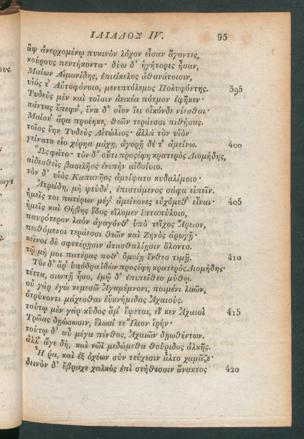 ΙΛΙΑΔΟΣ IV. 95
ἂψ ἀνερχομένῳ πυκινὸν λόχον εἷσαν ἄγοντες,
κούρους πεντήκοντα· δύω δ' ἡγήτορες ἦσαν,
Μαίων Αἱμονίδης, ἐπιείκελος ἀθανάτοισιν,
υἱός τ' Αὐτοφόνοιο, μενεπτόλεμος Πολυφόντης. 395
Τυδεὺς μὲν καὶ τοῖσιν ἀεικέα πότμον ἐφῆκεν·
πάντας ἔπεφν', ἕνα δ' οἶον ἵει οἶκόνδε νέεσθαι·
Μαίον' ἄρα προέηκε, θεῶν τεράεσσι πιθήσας.
τοῖος ἔην Τυδεὺς Αἰτώλιος· ἀλλὰ τὸν υἱὸν
γείνατο εἷο χέρηα μάχῃ, ἀγορῇ δέ τ' ἀμείνω. 400
Ὣς φάτο· τὸν δ' οὔτι προσέφη κρατερὸς Διομήδης,
αἰδεσθεὶς βασιλῆος ἐνιπὴν αἰδοίοιο.
τὸν δ' υἱὸς Καπανῆος ἀμείψατο κυδαλίμοιο·
Ἀτρείδη, μὴ ψεύδε', ἐπιστάμενος σάφα εἰπεῖν.
ἡμεῖς τοι πατέρων μέγ' ἀμείνονες εὐχόμεθ' εἶναι· 405
ἡμεῖς καὶ Θήβης ἕδος εἵλομεν ἑπταπύλοιο,
παυρότερον λαὸν ἀγαγόνθ' ὑπὸ τεῖχος Ἄρειον,
πειθόμενοι τεράεσσι θεῶν καὶ Ζηνὸς ἀρωγῇ·
κεῖνοι δὲ σφετέρῃσιν ἀτασθαλίῃσιν ὄλοντο.
τῷ μή μοι πατέρας ποθ' ὁμοίῃ ἔνθεο τιμῇ. 410
Τὸν δ' ἄρ' ὑπόδρα ἰδὼν προσέφη κρατερὸς Διομήδης·
τέττα, σιωπῇ ἧσο, ἐμῷ δ' ἐπιπείθεο μύθῳ·
οὐ γὰρ ἐγὼ νεμεσῶ Ἀγαμέμνονι, ποιμένι λαῶν,
ὀτρύνοντι μάχεσθαι ἐϋκνήμιδας Ἀχαιούς.
τούτῳ μὲν γὰρ κῦδος ἅμ' ἕψεται, εἴ κεν Ἀχαιοὶ 415
Τρῶας δῃώσωσιν, ἕλωσί τε Ἴλιον ἱρήν·
τούτῳ δ' αὖ μέγα πένθος, Ἀχαιῶν δῃωθέντων.
ἀλλ' ἄγε δὴ, καὶ νῶϊ μεδώμεθα θούριδος ἀλκῆς.
Ἦ ῥα, καὶ ἐξ ὀχέων σὺν τεύχεσιν ἆλτο χαμᾶζε·
δεινὸν δ' ἔβραχε χαλκὸς ἐπὶ στήθεσσιν ἄνακτος 420